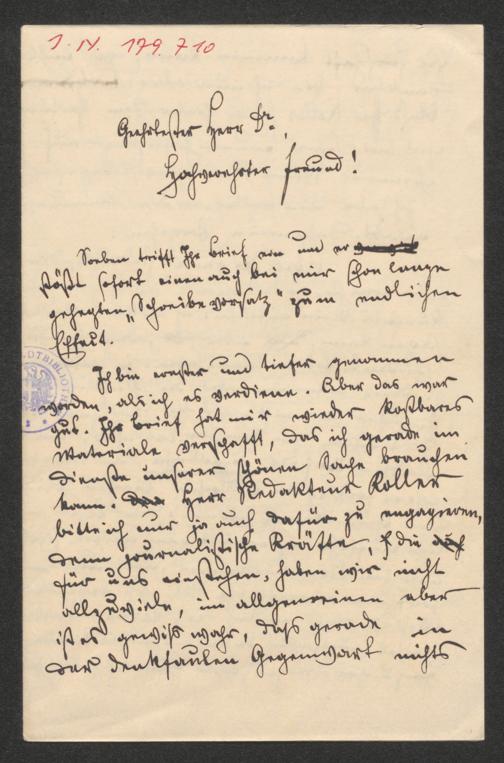 I. N. 179.710
Geehrtester Herr Dr.,
Hochverehrter Freund!
Soeben trifft Ihr Brief ein und er
stößt sofort einen auch bei mir schon lange
gehegten „Schreibevorsatz“ zum endlichen
Effect.
Ich bin ernster und tiefer genommen
worden, als ich es verdiene. Aber das war
gut. Ihr Brief hat mir wieder kostbares
Materiale verschafft, das ich gerade im
Dienste unserer schönen Sache brauchen
kann. Herr Redakteur Koller
bitte ich nur ja auch dafür zu engagieren,
denn journalistische Kräfte, die
für uns einstehen, haben wir nicht
allzuviele, im allgemeinen aber
ist es gewiss wahr, dass gerade in
der denkfaulen Gegenwart nichts